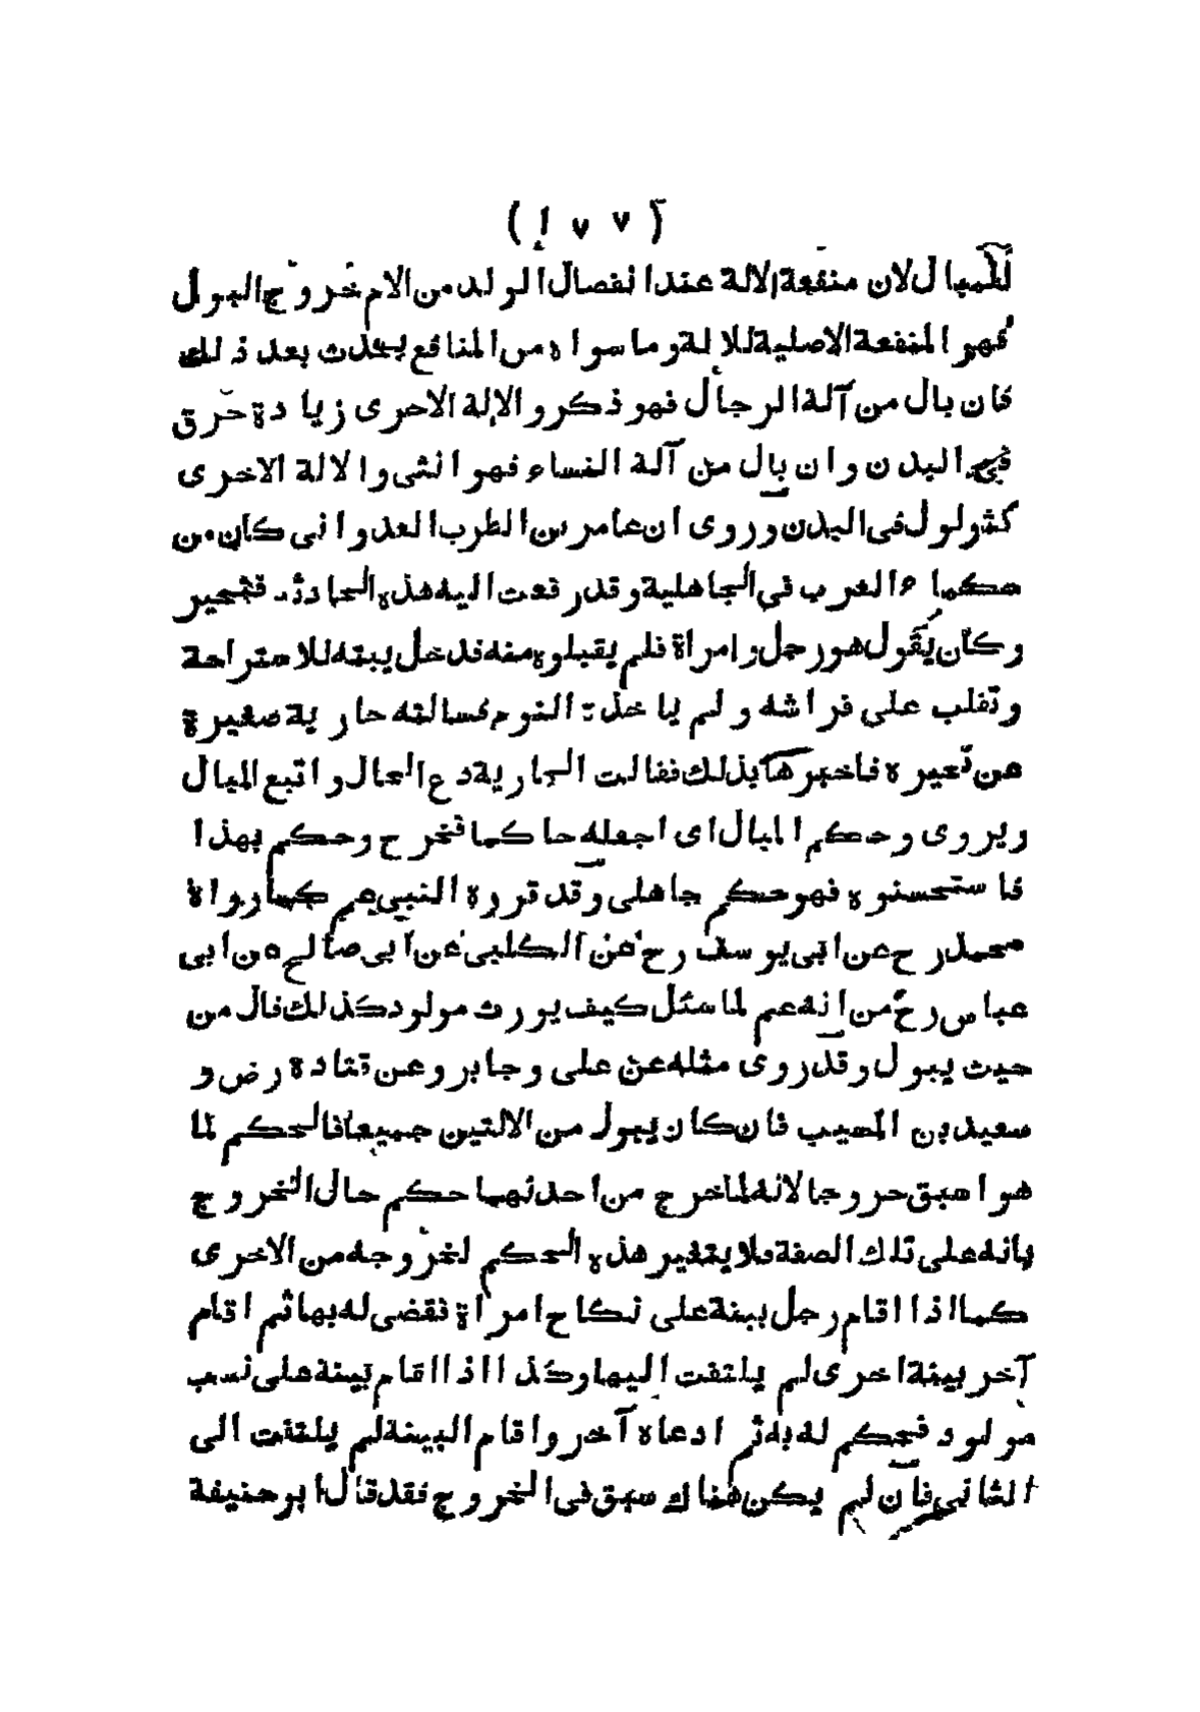 ( ١٧٧ )
للمبال لان منفعة الالة عند انفصال الولد من الام خروج البول
فهو المنفعة الاصلية للالة وما سواه من المنافع يحدث بعد ذلك
فان بال من آلة الرجال فهو ذكر والالة الاحرى زيادة خرق
في البدن وان بال من آلة النساء فهو انثى والالة الاخرى
كثولول فى البدن وروى ان عامر بن الظرب العدوانى كان من
حكماء العرب في الجاهلية وقد رفعت اليه هذه الحادثة فتحير
وكان يقول هو رجل وامراة فلم يقبلوه منه فدخل بيته للاستراحة
وتقلب على فراشه ولم ياخذه النوم فسالته جارية صغيرة
عن تحيره فاخبرها بذلك فقالت الجارية دع الحال واتبع المبال
ويروى وحكم المبال اى اجعله حاكما فخرج وحكم بهذا
فاستحسنوه فهو حكم جاهلى وقد قرره النبى عم كما رواه
محمد رح عن ابى يوسف رح عن الكلبى عن ابى صالح عن ابى
عباس رح من انه عم لما سئل كيف يورث مولود كذلك قال من
حيث يبول وقد روى مثله عن على وجابر وعن قتادة رض و
سعيد بن المسيب فان كان يبول من الالتين جميعا فالحكم لما
هو اسبق خروجا لانه لما خرج من احدىهما حكم حال الخروج
بانه على تلك الصفة فلا يتغير هذه الحكم لخروجه من الاخرى
كما اذا اقام رجل ببنة على نكاح امراة نقضى له بها ثم اقام
آخر بينة اخرى لم يلتفت اليها وكذا اذا اقام بينة على نسب
مولود فحكم له به ثم ادعاه آخر واقام البينة لم يلتفت الى
الثانى فان لم يكن هناك سبق فى الخروج فقد قال ابو حنيفة